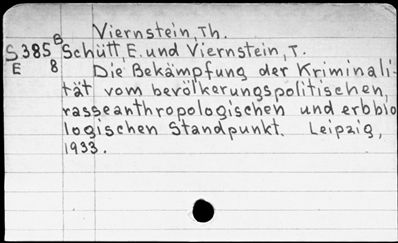 Viernstein, Th.
S385B Schütt, E. und Viernstein, T.
E 8 Die Bekämpfung der Kriminali-
tät vom bevölkerungspolitischen,
rasseanthropologischen und erbbio
logischen Standpunkt. Leipzig,
1933.